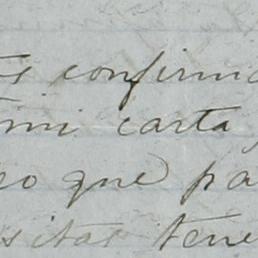 confirma
mi carta
que pa
sitar tene